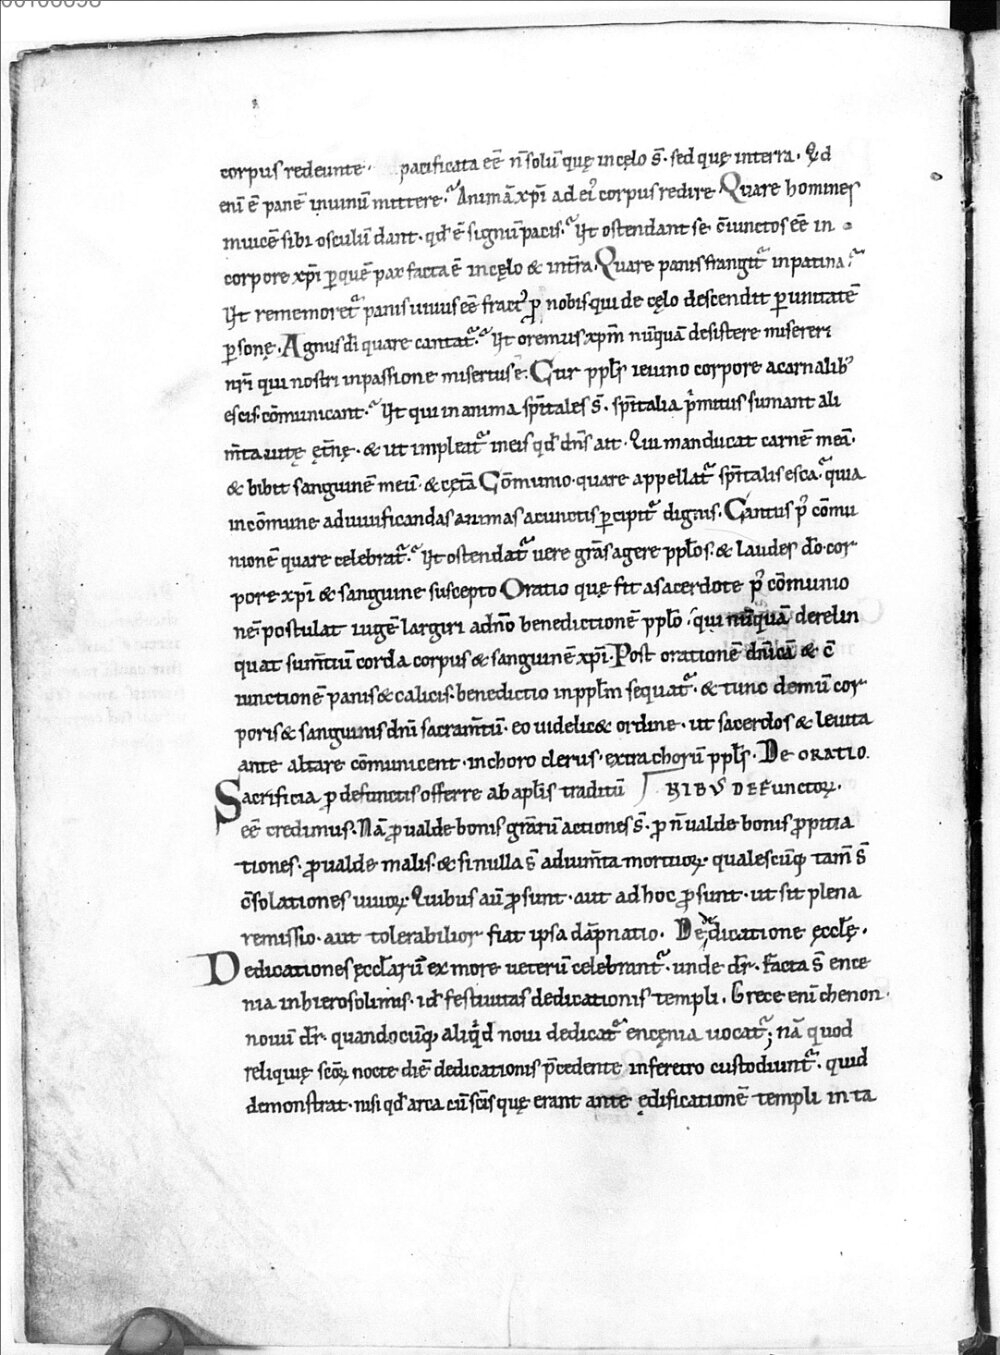 corpus redeunte. pacificata eē n̄ solū quę in cęlo s̄. sed quę in terra. Qd
enī ē panē in uinū mittere. Animā xp̄i ad ei᷒ corpus redire. Quare homines
inuicē sibi osculū dant. qd̄ ē signū pacis. Vt ostendant se c̄iunctos eē in
corpore xp̄i ꝑ quē pax facta ē in cęlo & in t̄ra. Quare panis frangit᷑ in patina.
Vt rememoret᷑ panis uiuus eē fract᷒ ꝓ nobis. qui de cęlo descendit ꝑ unitatē
ꝑsonę. Agnus dī quare cantat᷑. Vt oremus xp̄m nūquā desistere misereri
nr̄i qui nostri in passione misertus ē. Cur ppl̄s ieiuno corpore a carnalib᷒
escis cōmunicant. Vt qui in anima sp̄itales s̄. sp̄italia p̄mitus sumant ali
m̄ta uitę ęt̄nę. & ut impleat᷑ in eis qd̄ dn̄s ait. Qui manducat carnē meā.
& bibit sanguinē meū. & cęt̄a Cōmunio. quare appellat᷑ sp̄italis esca. quia
in cōmune ad uiuificandas animas a cunctis ꝑcipit᷑ dignis. Cantus p᷒ cōmu
nionē quare celebrat᷑. Vt ostendat᷑ uere grās agere ppl̄os. & laudes dō. cor
pore xp̄i & sanguine suscepto Oratio quę fit a sacerdote p᷒ cōmunio
nē. postulat iugē largiri a dn̄o benedictionē ppl̄o. qui nūquā derelin
quat sum̄tiū corda corpus & sanguinē xp̄i. Post orationē dn̄icā & c̄
iunctionē panis & calicis. benedictio in ppl̄m sequat᷑. & tunc demū cor
poris & sanguinis dn̄i sacram̄tū. eo uidelic& ordine. ut sacerdos & leuita
ante altare cōmunicent. in choro clerus. extra chorū ppl̄s. De ORATIO
Sacrificia ꝓ defunctis offerre ab apl̄is traditū NIBVS DEFunctoꝝ.
eē credimus. Nā ꝓ ualde bonis gr̄arū actiones s̄. ꝓ n̄ ualde bonis ꝓpitia
tiones. ꝓ ualde malis. & si nulla s̄ adium̄ta mortuoꝝ. qualescūq; tam̄ s̄
c̄solationes uiuoꝝ. Quibus aū ꝓsunt. aut ad hoc ꝓsunt. ut sit plena
remissio. aut tolerabilior fiat ipsa dāpnatio. De dedicatione ęccl̄ę.
Dedicationes ęccl̄arū ex more ueterū celebrant᷑. unde dr̄. Facta s̄ ence
nia in hierosolimis. id̄ festiuitas dedicationis templi. Grece enī chenon.
nouū dr̄. quandocūq; aliqd noui dedicat᷑ encęnia uocat᷑; nā quod
reliquię scōꝝ nocte diē dedicationis p̄cedente in feretro custodiunt᷑. quid
demonstrat. nisi qd̄ arca cū sc̄is quę erant ante ędificationē templi in ta